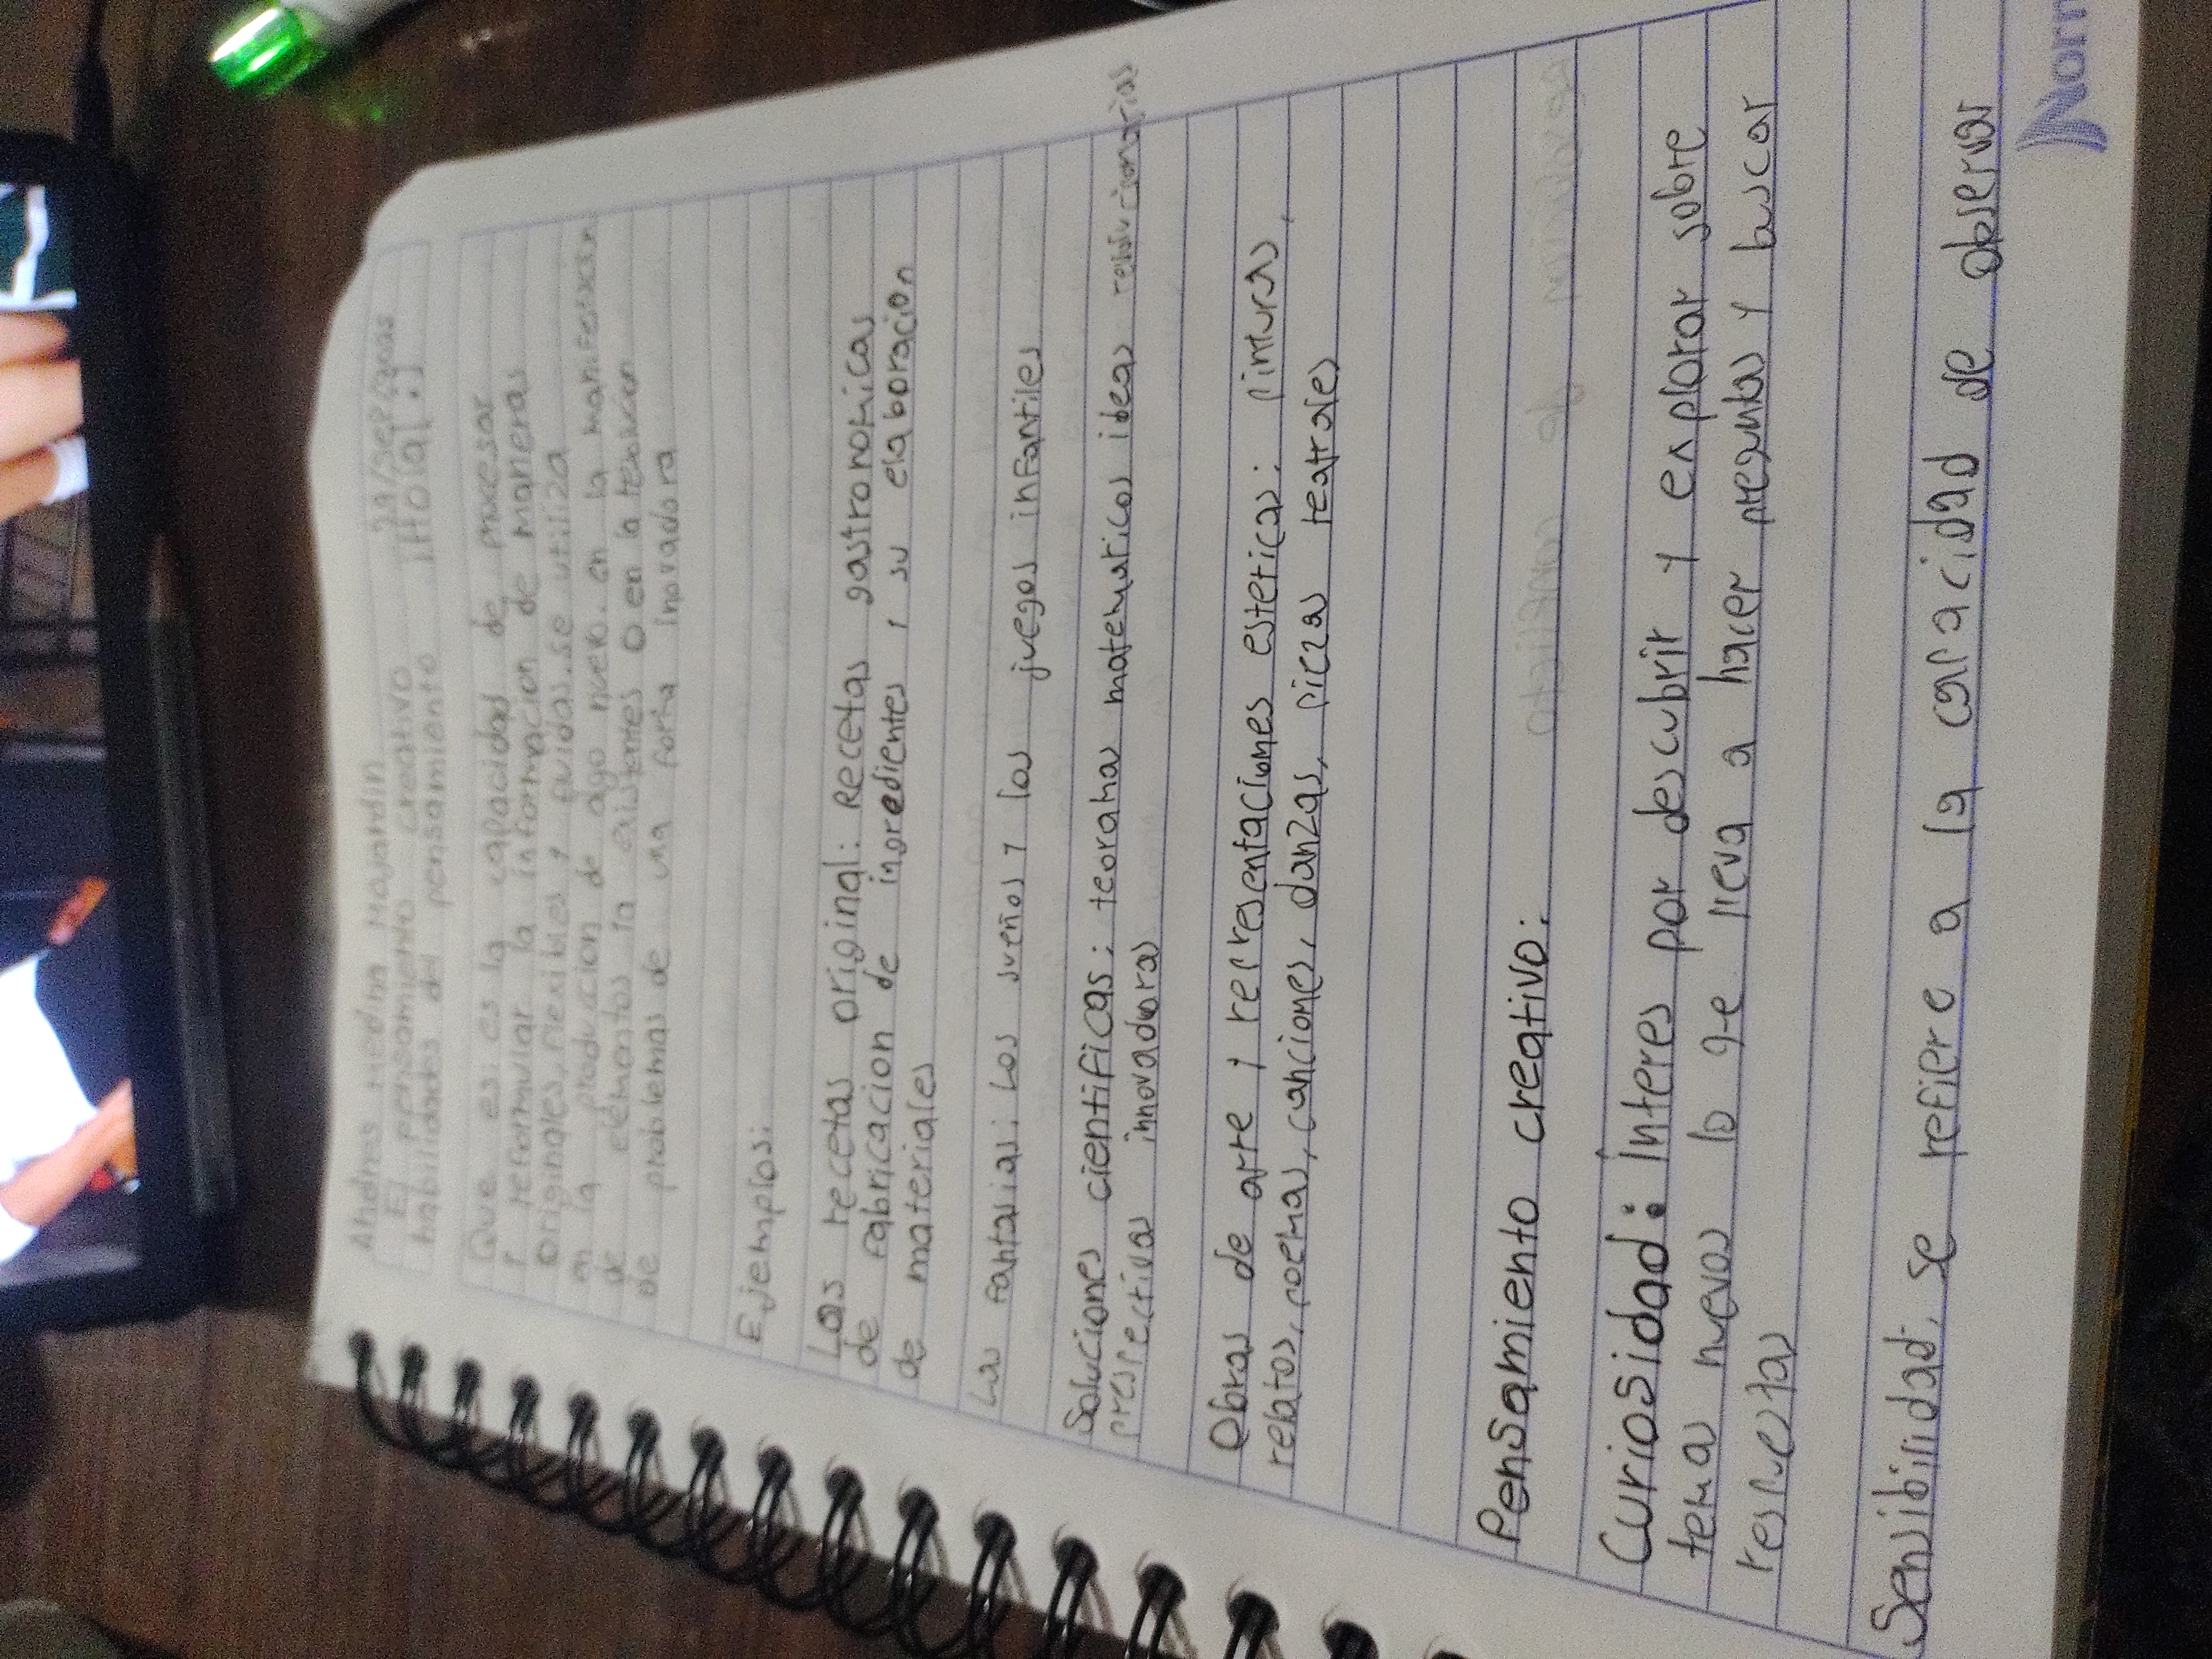 Andres Medina Mojardin
29/sep/2025
El pensamiento creativo
habilidades del pensamiento
Que es: es la capacidad de procesar
y reformular la informacion de maneras
originales, flexibles y fluidas. se utiliza
en la producion de algo nuevo. en la manifestacion
de elementos ya existentes o en la
de problemas de una forma inovadora
Ejemplos:
Las recetas original: Recetas gastronomicas
de fabricacion de ingredientes y su elaboracion
de materiales
Las fantasias: Los sueños y los juegos infantiles
Soluciones cientificas: teorama matematicos ideas revolucionarias
prespectivas innovadoras
Obras de arte y recresentaciones esteticas: pinturas,
relatos, poemas, canciones, danzas, piezas teatrales
Pensamiento creativo:
Curiosidad: Interes por descubrir y explorar sobre
temas nuevos lo que lleva a hacer preguntas y buscar
respuestas
Sensibilidad: se refiere a la capacidad de observar
Norm